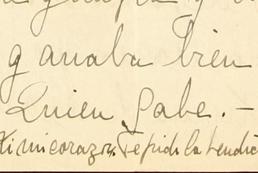 ganaba bien
Quien Sabe. —
mi corazon. Te pido la bendic